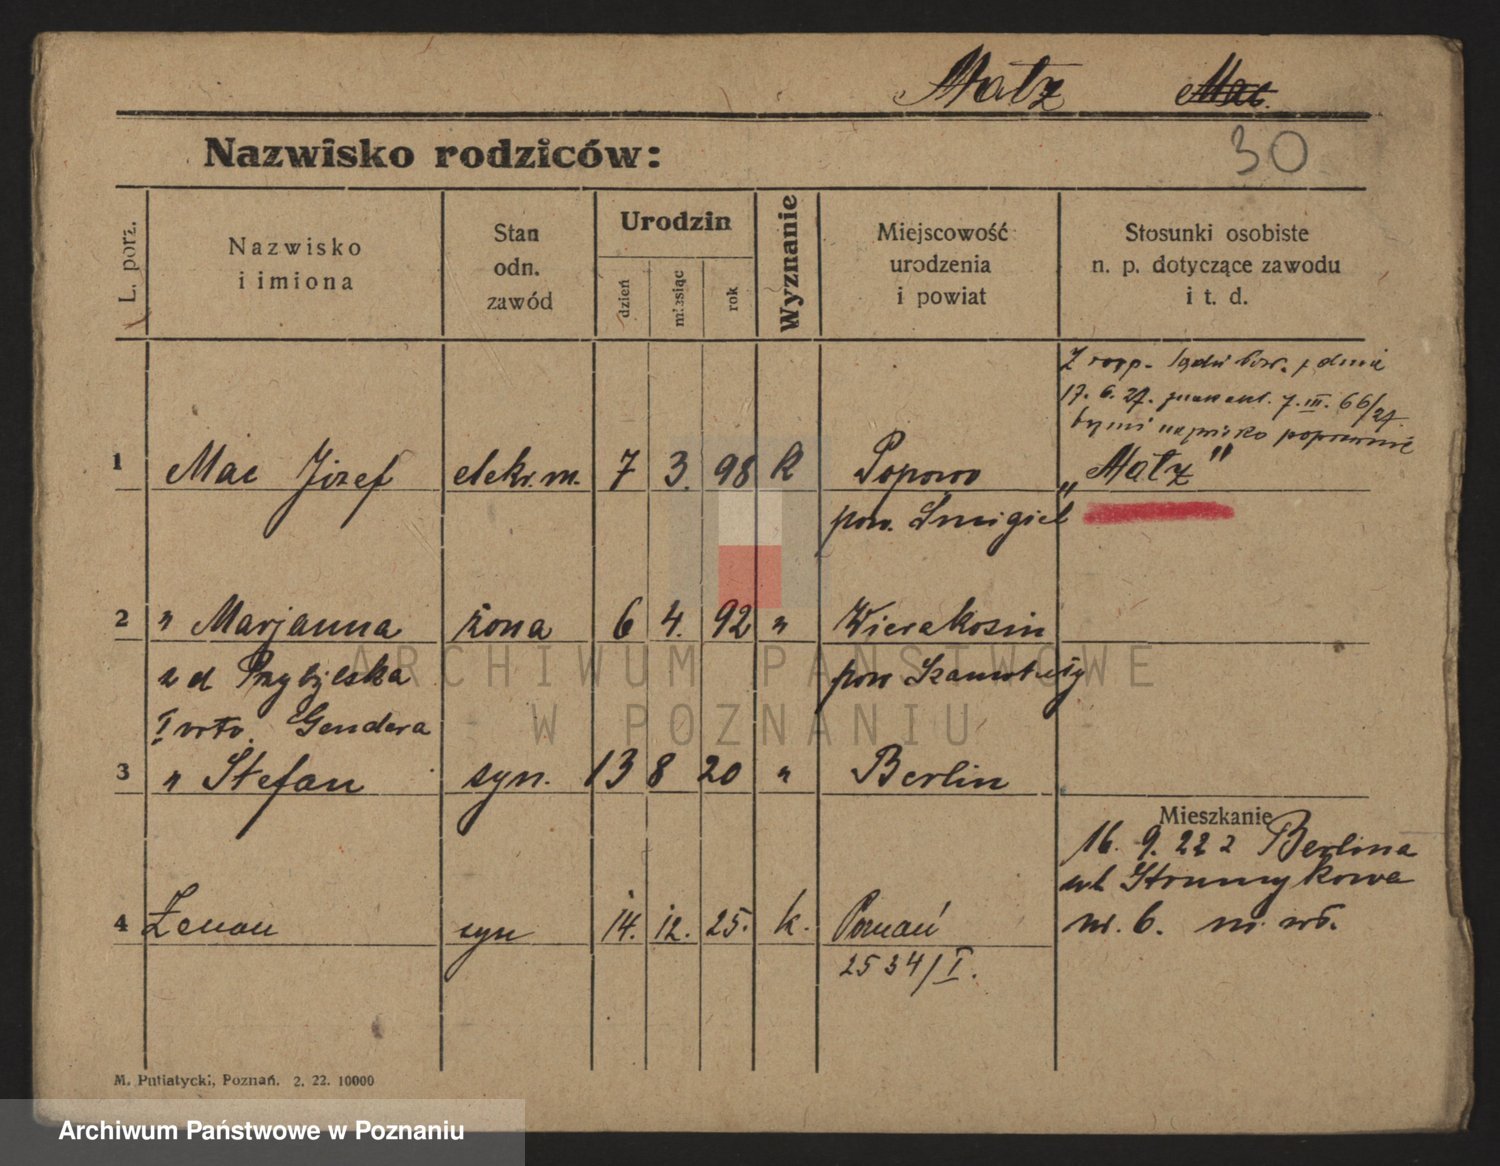 Matz Mac.
30
Nazwisko rodziców:
L. porz.
Nazwisko
i imiona
Stan
odn.
zawód
Urodzin
dzień
miesiąc
rok
Wyznanie
Miejscowość
urodzenia
i powiat
Stosunki osobiste
n. p. dotyczące zawodu
i t. d.
Z rozp. z dnia
17. 6. 27. 7. III. 66/27.
nazwisko
1 Mac Józef elekr. m. 7 3. 98 k Popowo „Matz"
pow. Śmigiel
2 " Marjanna żona 6 4. 92 " Wierakosin
zd Przybylska pow Szamotuły
I Gendera
3 " Stefan syn. 13 8 20 " Berlin
Mieszkanie
16. 9. 22 z Berlina
ul Strumykowa
nr. 6. m. wł.
4 Zenon syn 14. 12. 25. k. Poznań
2534/I.
M. Putiatycki, Poznań. 2. 22. 10000
ARCHIWUM PAŃSTWOWE
W POZNANIU
Archiwum Państwowe w Poznaniu